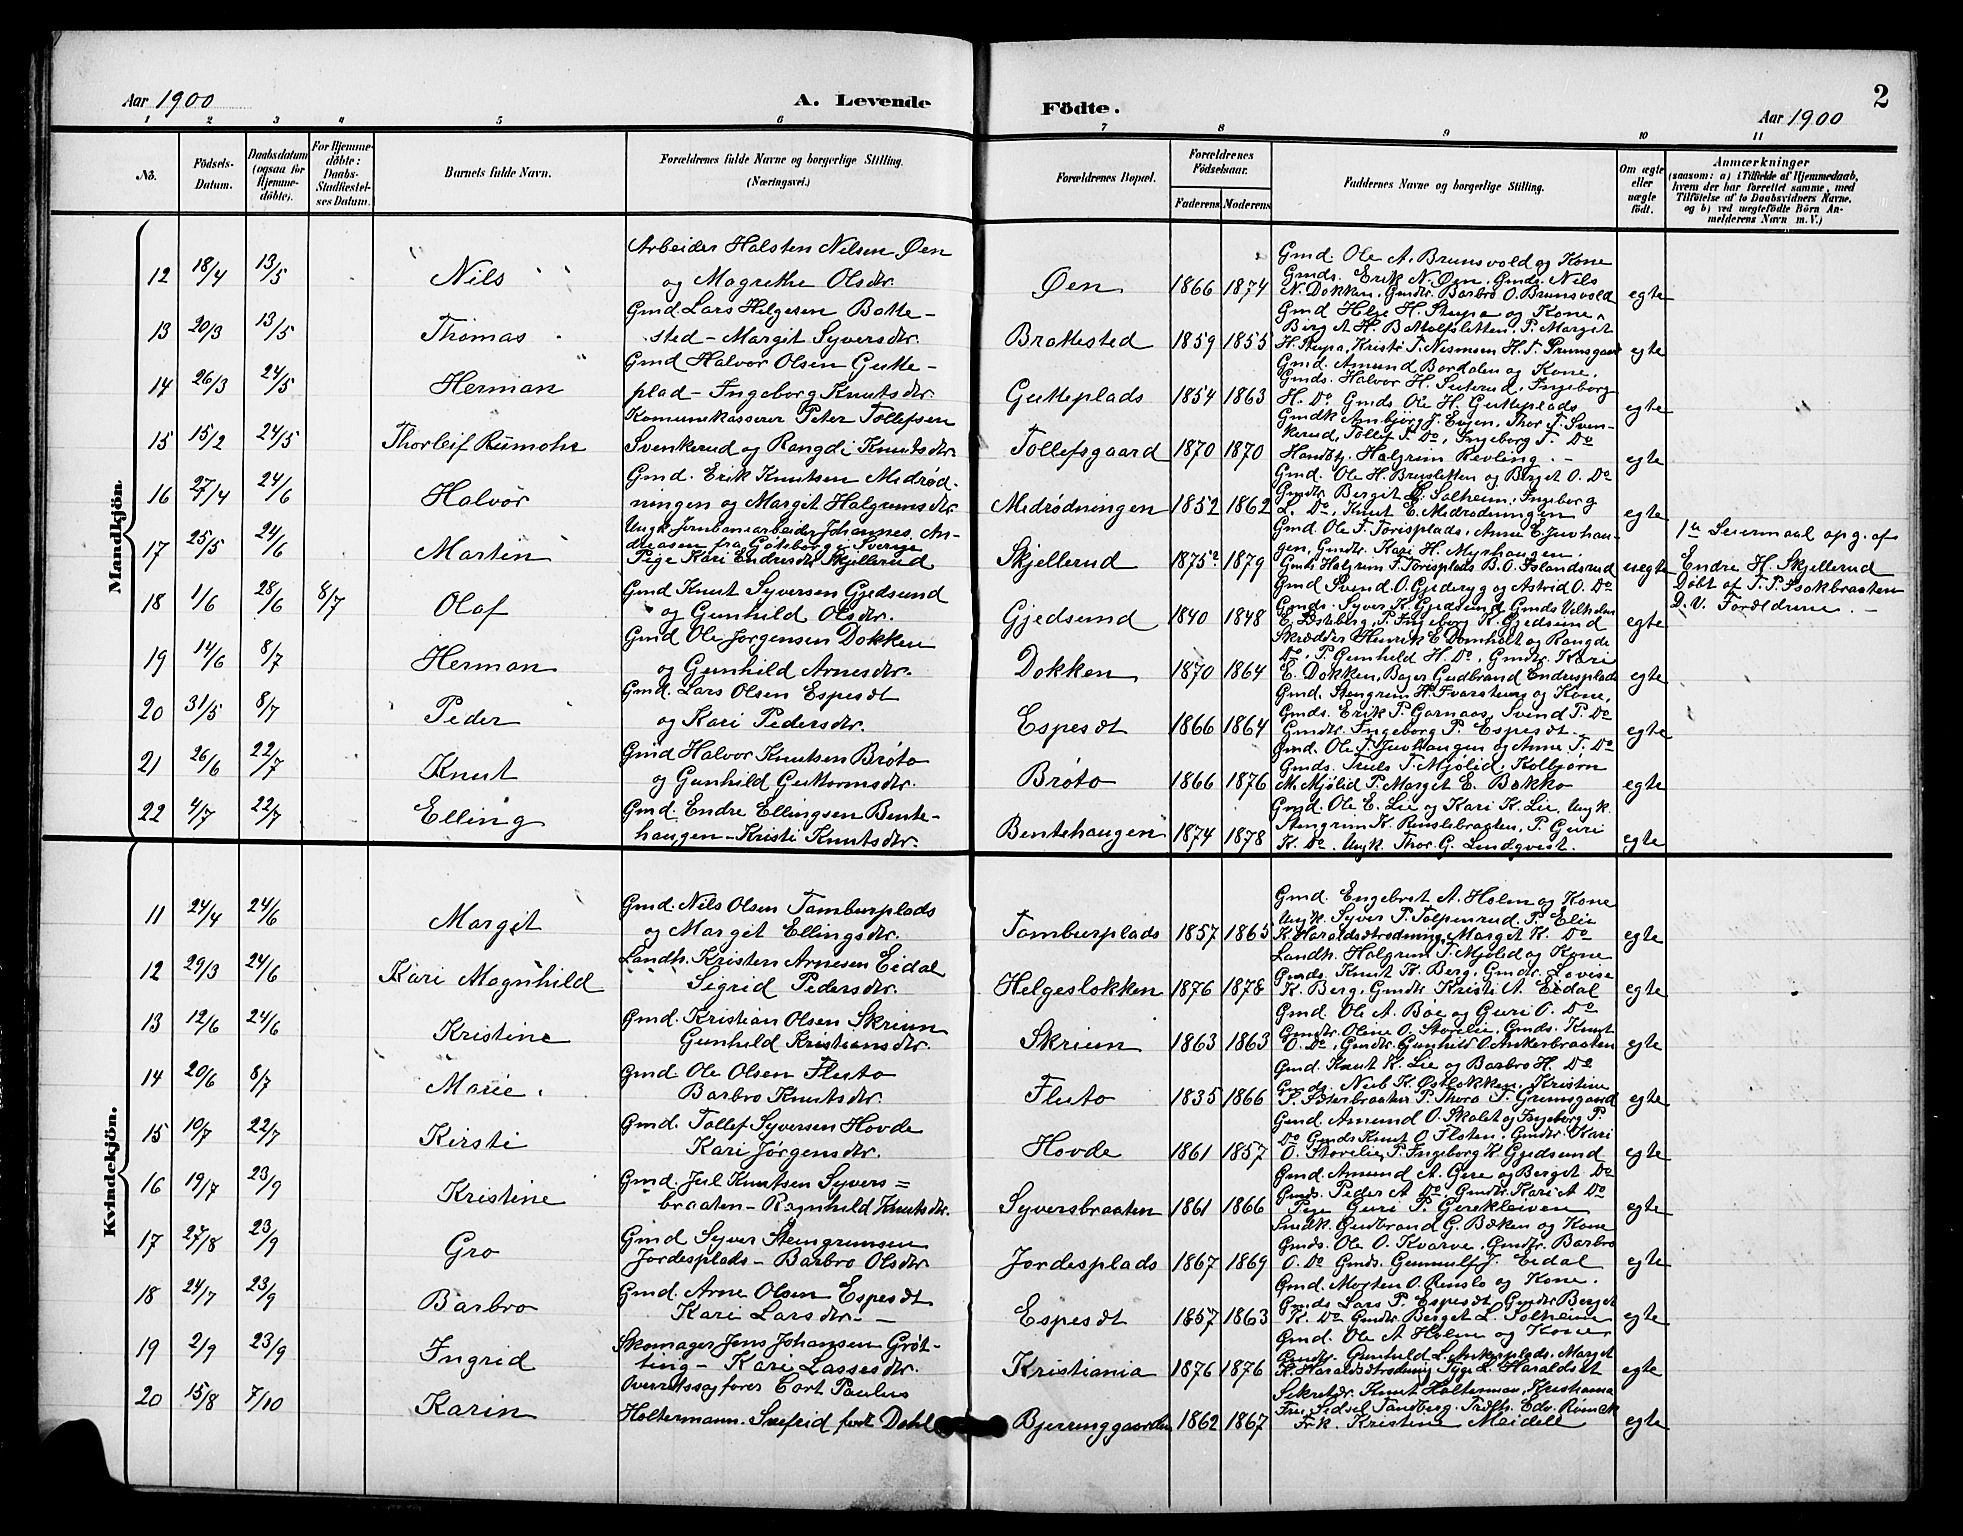 Aar 1900
A. Levende
Födte.
Aar 1900
2
1 2 3 4 5 6 7 8 9 10 11
No.
Födsels-Datum.
Daabsdatum (ogsaa for Hjemmedöbte).
For Hjemmedöbte: Daabs-Stadfæstelses Datum.
Barnets fulde Navn.
Forældrenes fulde Navne og borgerlige Stilling. (Næringsvei.)
Forældrenes Bopæl.
Forældrenes Födselsaar.
Faderens Moderens
Faddernes Navne og borgerlige Stilling.
Om ægte eller uægte födt.
Anmærkninger
(saasom: a) i Tilfælde af Hjemmedaab, hvem der har forrettet samme, med Tilföielse af to Daabsvidners Navne, og b) ved uægtefödte Börn Anmelderens Navn m. V.)
Mandkjön.
12 18/4 13/5 Nils
Arbeider Halsten Nilsen Øen
og Magrethe Olsdtr.
Øen 1866 1874
Gmd. Ole A. Brunsvold og Kone
Gmds. Erik N. Øen, Gmds. Nils
N. Dokken, Gmdtr. Barbro O. Brunsvold
egte
13 20/3 13/5 Thomas
Gmd. Lars Helgesen Batte-
sted - Margit Syversdtr.
Brattested 1859 1855
Gmd Helge H. Stupa og Kone,
Berg A. H. Battolfsletten, P. Margit
H. Stupa, Kristi T.
egte
14 26/3 24/5 Herman
Gmd Halvor Olsen Gutte-
plad - Ingeborg Knutsdtr.
Gutteplads 1854 1863
Gmd. Amund Bordalen og Kone,
Gmds. Halvor H. Ingeborg
H. Do. Gmds Ole H. Gutteplads
egte
15 15/2 24/5 Thorleif Rumohr
Komunekasserer Peter Tollefsen
Svenkerud og Rangdi Knudsdtr.
Tollefsgaard 1870 1870
Gmdk Anbjør J. Eigen, Thor T. Sven-
kerud, Tollef T. Do, Ingeborg T. Do
Handbtj. Halgrim Revling. -
egte
16 27/4 24/6 Halvor
Gmd. Erik Knutsen Midrød-
ningen og Margit Halgrimsdtr.
Midrødningen 1852 1862
Gmd. Ole H. Brensletten og Berget O. Do
Gmdtr. Bergit E. Solheim, Ingeborg
L. Do, Knut E. Midrødningen
egte
17 25/5 24/6 Martin
Ungk. Jernbanearbeider Johannes An-
dreasen fra Gøteborg i Sverige
Pige Kari Endresdtr Skjellerud
Skjellerud 1875 1879
Gmd Ole T. Torisplads, Anne E. Juvhau-
gen, Gmdtr. Kari H. Myrhaugen.
Gmds Halgrim T. Torisplads B. O. Islandsrud
uegte
1ste Leiermaal opg. af
Endre H. Skjellerud
18 1/6 28/6 8/7 Olaf
Gmd Knut Syversen Gjedsund
og Gunhild Olsdtr.
Gjedsund 1840 1848
Gmd Svend O. Gjederyg og Astrid O. Do
Gmds. Syver K. Gjedsund Gmds Vilhelm
E. Østeberg, P. Ingeborg K. Gjedsund
egte
Døbt af T. P. Isokbraaten
D. V. Forældrene. -
19 14/6 8/7 Herman
Gmd Ole Jørgensen Dokken
og Gunhild Arnesdtr.
Dokken 1870 1864
Skrædder Henrik E. Domholt og Rangde
Do, P. Gunhild H. Do, Gmdtr. Kari
E. Dokken, Bojer Gudbrand Endresplads
egte
20 31/5 8/7 Peder
Gmd. Lars Olsen Espesdt
og Kari Pedersdtr.
Espesdt 1866 1864
Gmd. Stengrim H. Tvarsteig og Kone,
Gmds. Erik P. Garnaas, Svend P. Do
Gmdtr. Ingeborg P. Espesdt.
egte
21 26/6 22/7 Knut
Gmd Halvor Knutsen Brøto
og Gunhild Guttormsdtr.
Brøto 1866 1876
Gmd. Ole T. Juvhaugen og Anne T. Do
Gmds. Truls T. Mjølid, Kolbjørn
M. Mjølid P. Marget E. Bakko
egte
22 4/7 22/7 Elling
Gmd. Endre Ellingsen Bente-
haugen - Kristi Knutsdtr.
Bentehaugen 1874 1878
Gmd. Ole E. Lie og Kari K. Lie, Ungk.
Stengrim K. Renslebraaten, P. Guri
K. Do. Ungk. Thor G. Lindqvist.
egte
Kvindekjön.
11 24/4 24/6 Margit
Gmd. Nils Olsen Tamburplads
og Marget Ellingsdtr.
Tamburplads 1857 1865
Gmd. Engebret A. Holm og Kone
Ungk. Syver P. Tolpenrud. P. Elie
K. Haraldsetrødning, Marget K. Do
egte
12 29/3 24/6 Kari Magnhild
Landh. Kristen Arnesen Eidal
Sigrid Pedersdtr.
Helgeslokken 1876 1878
Landh. Halgrim T. Mjølid og Kone
Gmds. Knut K. Berg, Gmdtr. Lovise
K. Berg, Gmdtr Kristi A. Eidal
egte
13 12/6 24/6 Kristine
Gmd. Kristian Olsen Skriun
Gunhild Kristiansdtr.
Skriun 1863 1863
Gmd. Ole A. Bøe og Guri O. Do
Gmdtr. Oline O. Storelie, Gmds. Knut
O. Do, Gmdtr. Gunhild O. Ankerbraaten
egte
14 20/6 8/7 Marie.
Gmd. Ole Olsen Fluto
Barbro Knutsdtr.
Fluto 1835 1866
Gmd. Knut K. Lie og Barbro H. Do
Gmds. Nub K. Østlokken, Kristine
P. Thora T. Grimsgaard
egte
15 10/7 22/7 Kirsti
Gmd. Tollef Syversen Hovde
Kari Jørgensdtr.
Hovde 1861 1857
Gmd. Amund O. Skolt og Ingeborg P.
Do Gmds Knut O. Flaten, Gmdtr. Kari
O. Storelie, P. Ingeborg K. Gjedsund
egte
16 19/7 23/9 Kristine
Gmd. Jul Knutsen Syvers=
braaten - Ragnhild Knutsdtr.
Syversbraaten 1861 1866
Gmd. Amund A. Gere og Berget Do
Gmds. Peder A Do. Gmdtr. Kari A Do
Pige Guri P. Gerekleiven
egte
17 27/8 23/9 Gro
Gmd Syver Stengrimsen
Jordesplads - Barbro Olsdtr
Jordesplads 1867 1869
Smdk. Gudbrand G. Bæken og Kone
Gmds. Ole O. Kvarve, Gmdtr. Barbro
O. Do Gmds. Gunnulf J. Eidal
egte
18 24/7 23/9 Barbro
Gmd. Arne Olsen Espesdt
Kari Larsdtr. -
Espesdt 1857 1863
Gmd. Morten O. Renslo og Kone.
Gmds Lars P. Espesdt, Gmdtr Berget
K. Do Gmdtr Berget L. Solheim
egte
19 2/9 23/9 Ingrid
Skomager Jens Johansen Grøt-
ting - Kari Lassesdtr.
Kristiania 1876 1876
Gmd. Ole A Holm og Kone,
Gmdtr. Gunhild L. Ankerplads. Marget
K. Haraldsetrødning, Tyge L. Haraldset
egte
20 15/8 7/10 Karin
Overretssagfører Cort Paulus
Holtermann. Snefrid født Dahl
Bjerringgaarden 1862 1867
Sekretær. Knut Holterman, Kristiania
Fru Sidsel Tandberg.
Frk. Kristine Meidell
egte